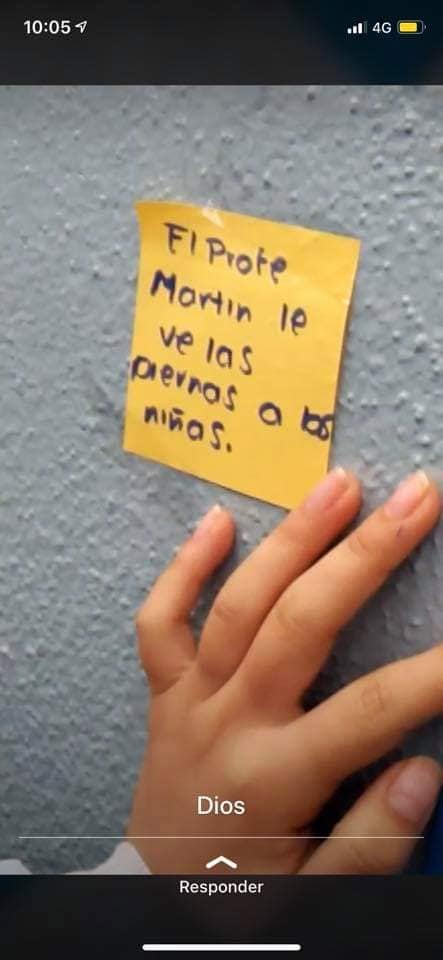 10:05
4G
El Profe
Martin le
ve las
piernas a las
niñas.
Dios
Responder